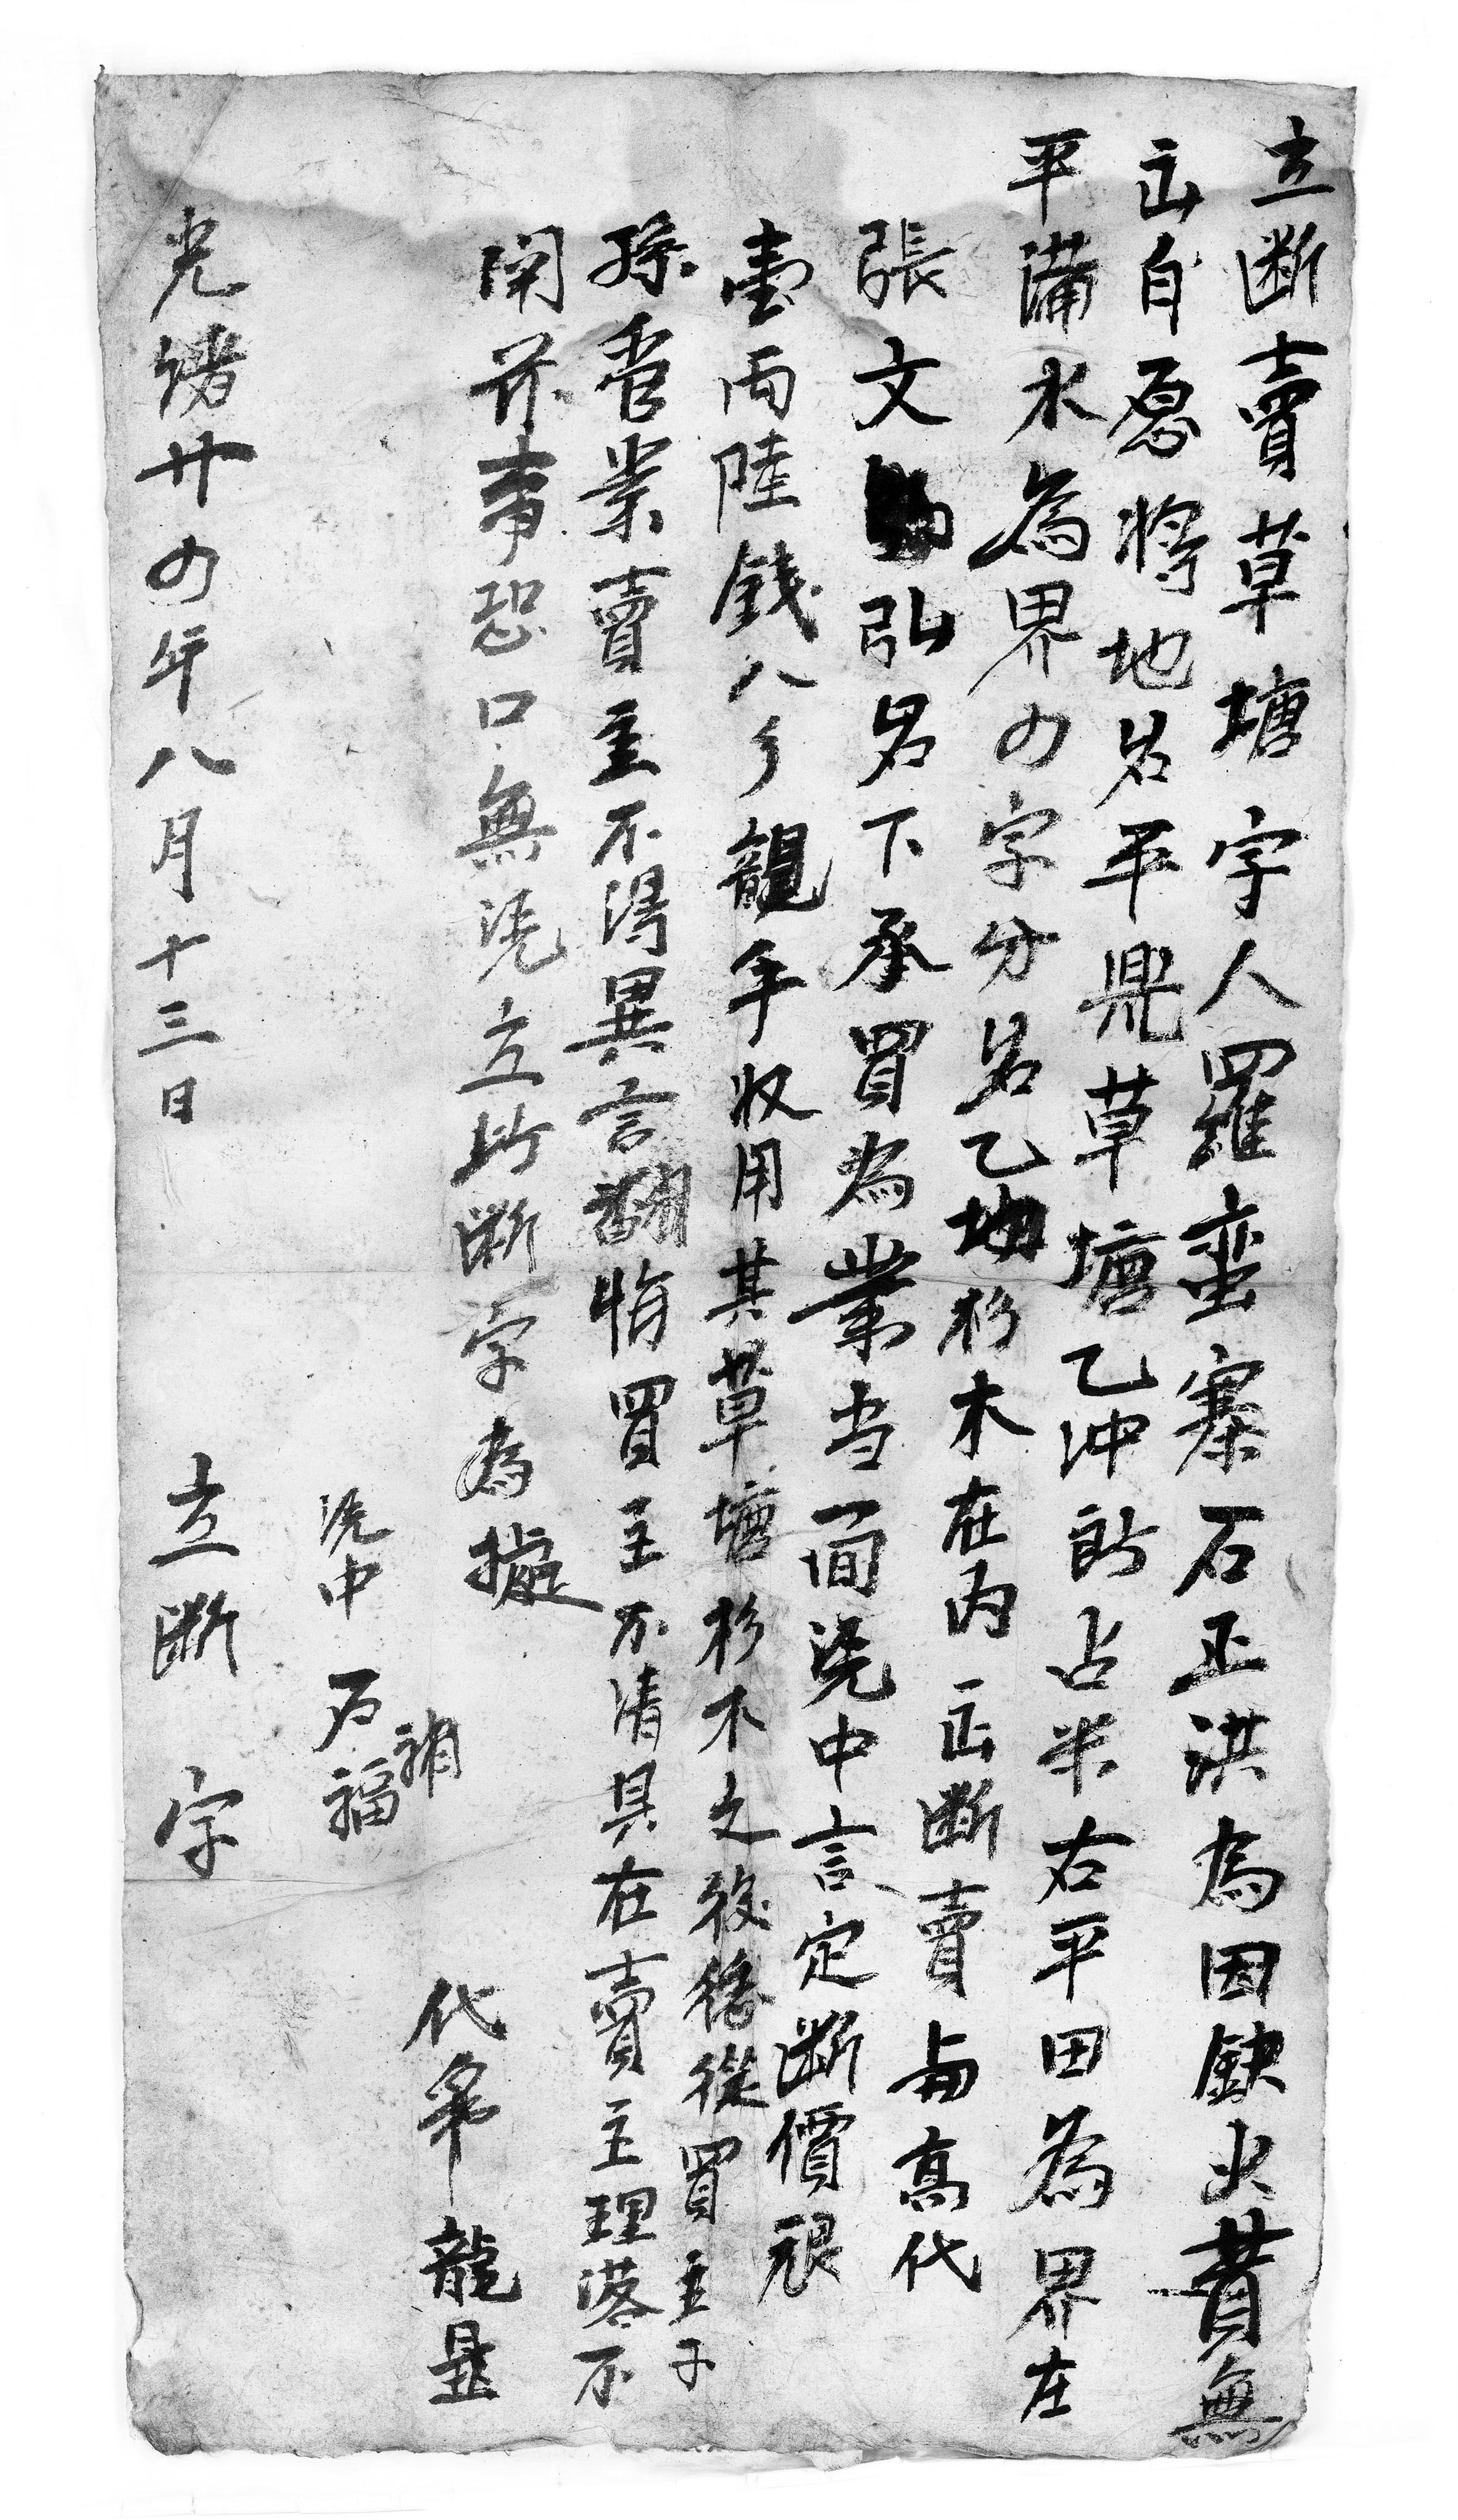 立断賣草塘字人羅蛮寨石正洪為因缺少費無
出自愿將地名平鼎草塘乙冲所占半右平田為界在
平溝水為界四字分名乙坳杉木在内出断賣与高代
張文弘名下承買為業当面凭中言定断價銀
壹両陸錢八分親手收用其草塘杉木之後恁從買主子
孫管業賣主不得異言翻悔買主不清具在賣主理落不
関弟事恐口無凭立此断字為據
代筆龍显
輔
凭中石福
光緒廿四年八月十三日　立断字